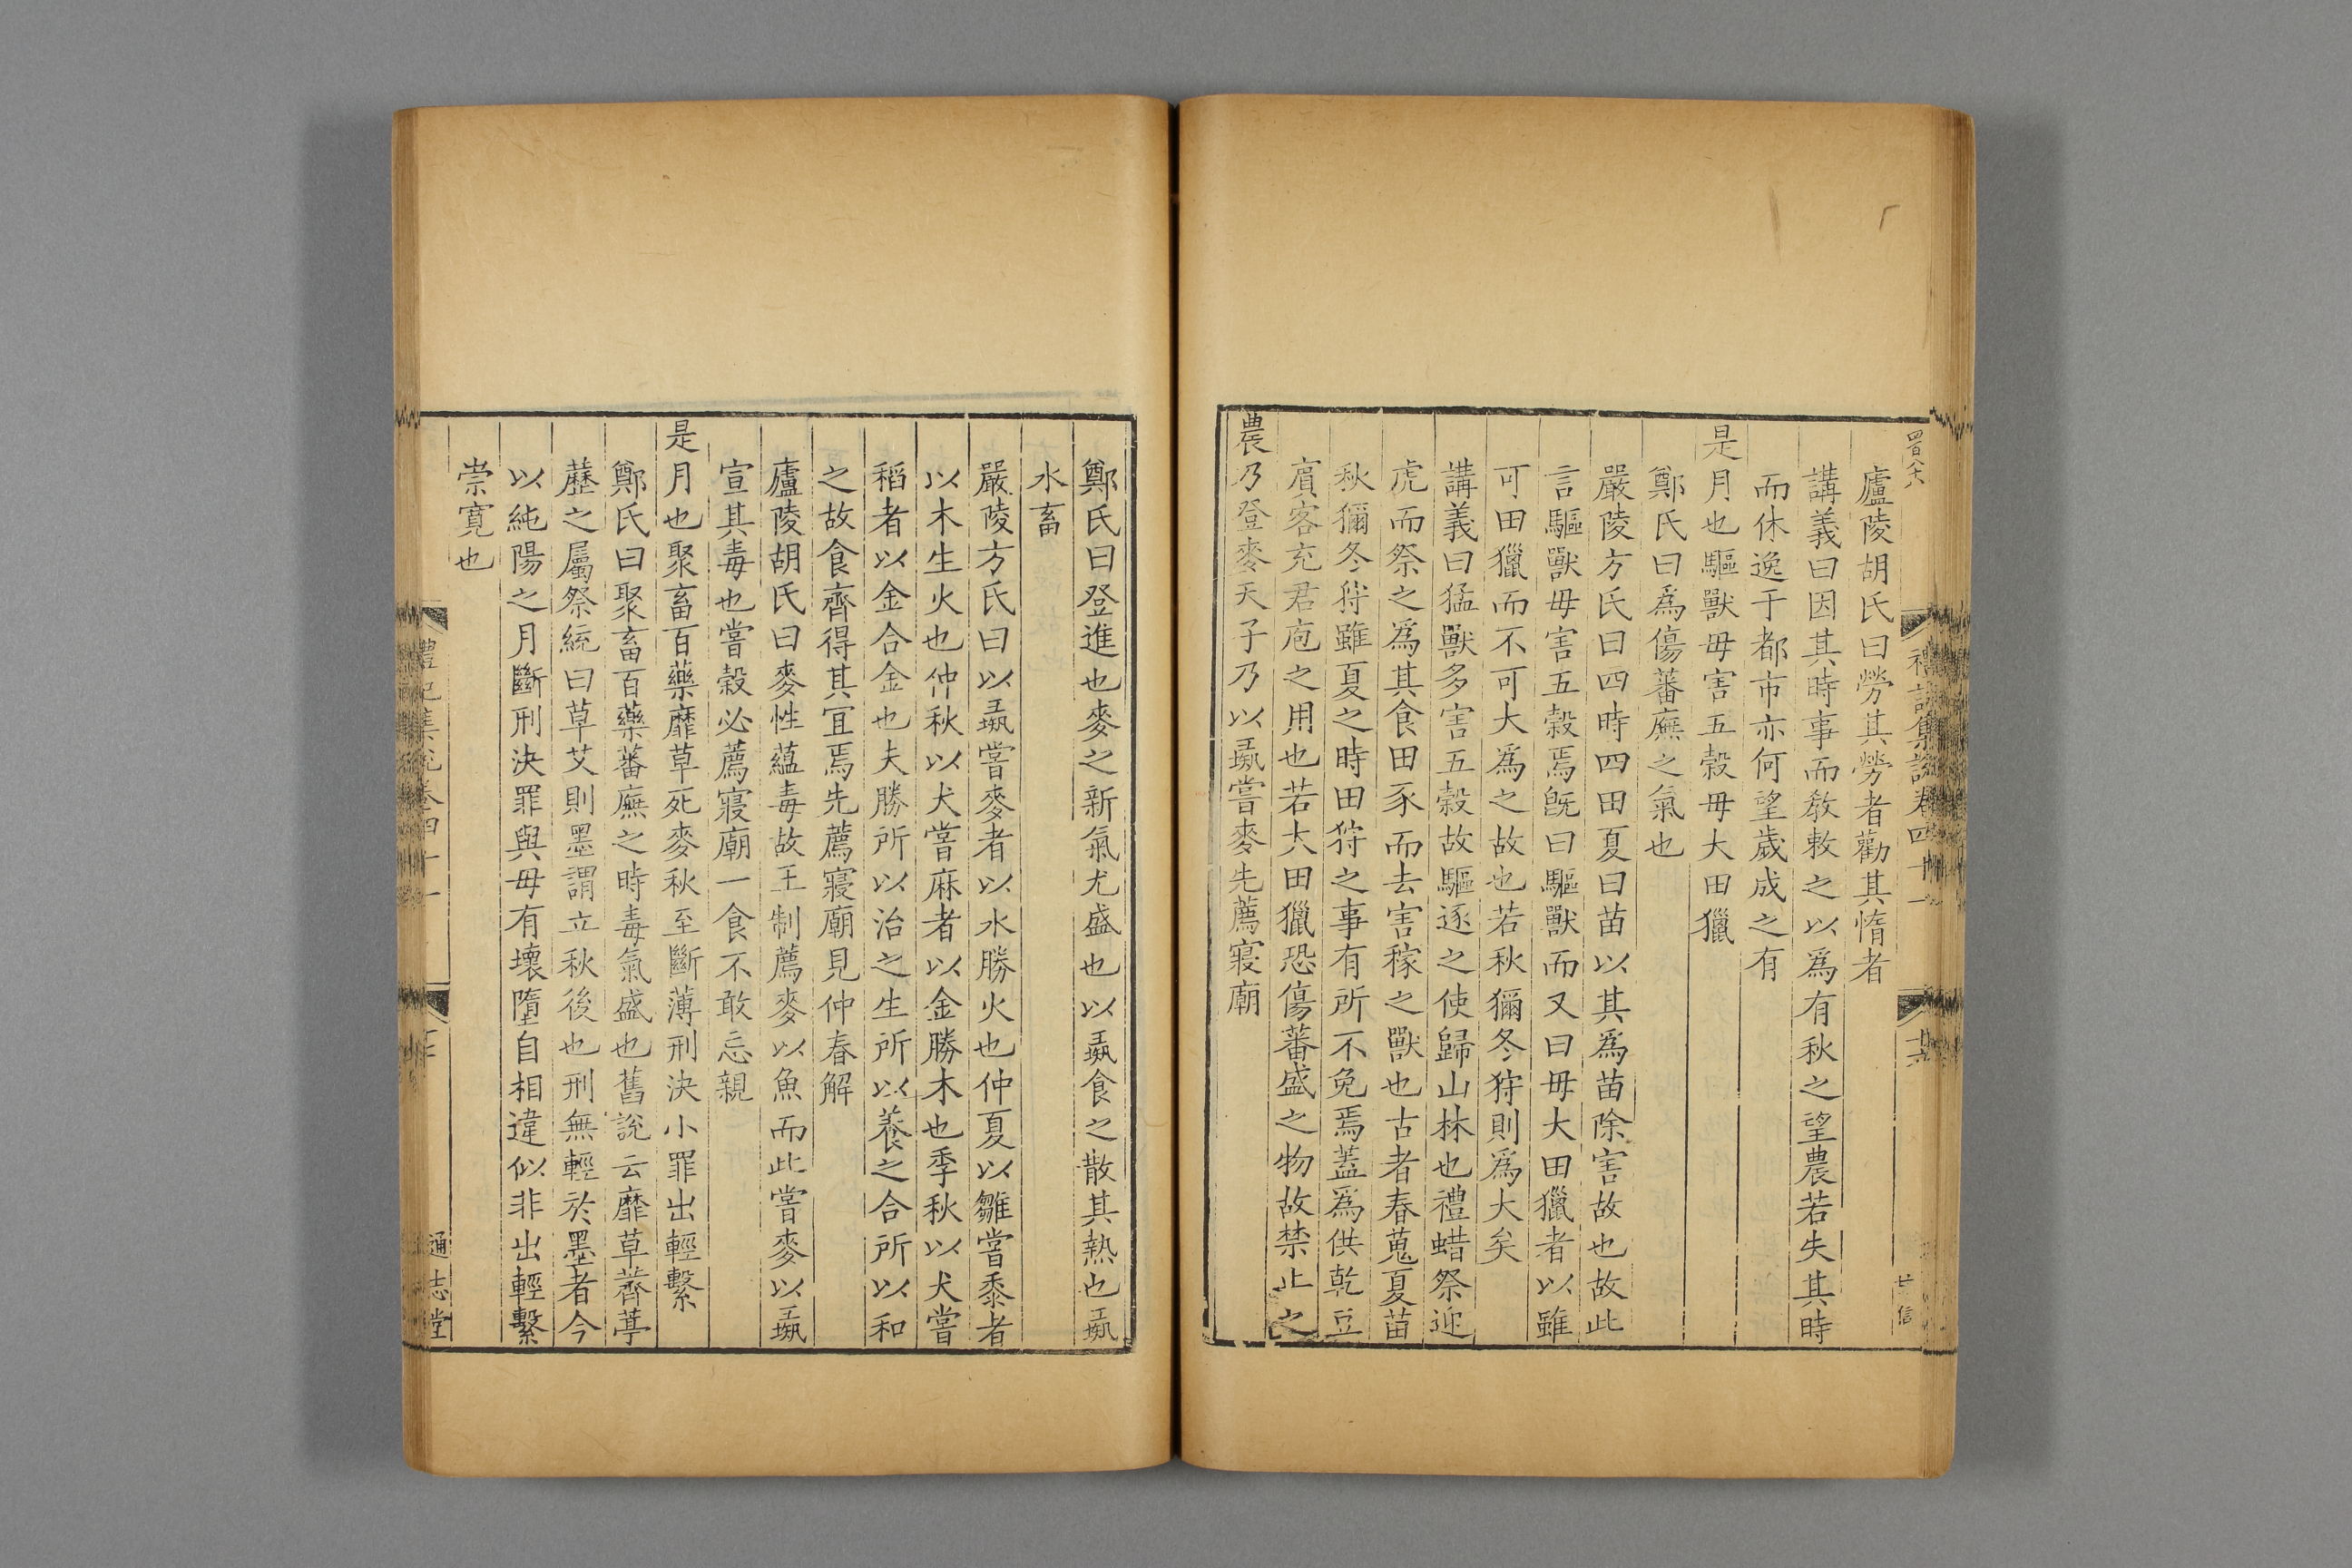 廬陵胡氏曰勞其勞者勸其惰者
講義曰因其時事而敎敕之以爲有秋之望農若失其時
而休逸于都市亦何望歲成之有
是月也驅獸毋害五穀毋大田獵
鄭氏曰爲傷蕃廡之氣也
嚴陵方氏曰四時四田夏曰苗以其爲苗除害故也故此
言驅獸毋害五穀焉旣曰驅獸而又曰毋大田獵者以雖
可田獵而不可大爲之故也若秋獮冬狩則爲大矣
講義曰猛獸多害五穀故驅逐之使歸山林也禮蜡祭迎
虎而祭之爲其食田豕而去害稼之獸也古者春蒐夏苗
秋獮冬狩雖夏之時田狩之事有所不免焉蓋爲供乾豆
賔客充君庖之用也若大田獵恐傷蕃盛之物故禁止之
農乃登麥天子乃以彘嘗麥先薦寢廟
鄭氏曰登進也麥之新氣尤盛也以彘食之散其熱也彘
水畜
嚴陵方氏曰以彘嘗麥者以水勝火也仲夏以雛嘗黍者
以木生火也仲秋以犬嘗麻者以金勝木也季秋以犬嘗
稻者以金合金也夫勝所以治之生所以養之合所以和
之故食齊得其宜焉先薦寢廟見仲春解
廬陵胡氏曰麥性蘊毒故王制薦麥以魚而此嘗麥以彘
宣其毒也嘗穀必薦寢廟一食不敢忘親
是月也聚畜百藥靡草死麥秋至斷薄刑決小罪出輕繫
鄭氏曰聚畜百藥蕃廡之時毒氣盛也舊說云靡草薺葶
藶之屬祭統曰草艾則墨謂立秋後也刑無輕於墨者今
以純陽之月斷刑決罪與毋有壞墮自相違似非出輕繫
崇寬也
禮記集說卷四十一
通志堂